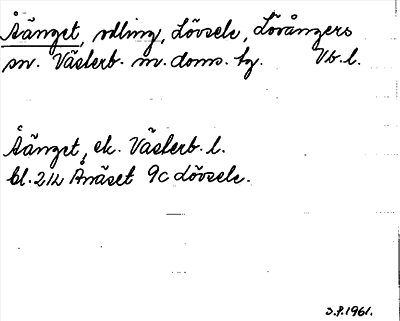 Åänget, odling, Lövsele, Lövångers
sn. Västerb. n. doms. tg. Vb. l.
Åänget, ek. Västerb. l.
bl. 212 Ånäset 9c Lövsele.
3.8.1961.